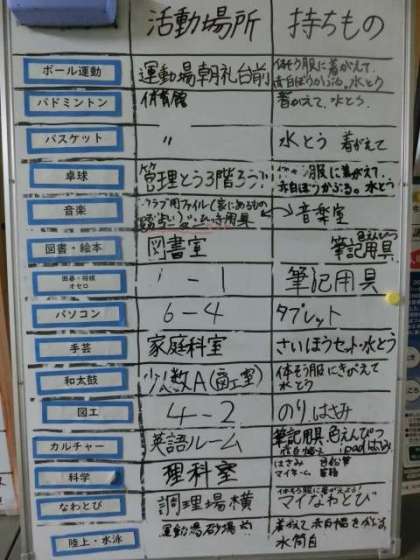 活動場所 持ちもの
ボール運動 運動場朝礼台前 体そう服に着がえて. 赤白ぼうかぶる。水とう
バドミントン 体育館 着がえて、水とう.
バスケット 〃 水とう 着がえて
卓球 管理とう3階ろう 服に着がえて. 赤白ぼうかぶる。水とう
音楽 クラブ用ファイル(家にあるもの 用具 音楽室
図書・絵本 図書室 色えんぴつ 筆記用具
囲碁・将棋 オセロ - 1 筆記用具
パソコン 6-4 タブレット
手芸 家庭科室 さいほうセット・水とう
和太鼓 少人数A(図工室) 体そう服にきがえて 水とう
図工 4-2 のり はさみ
カルチャー 英語ルーム 筆記用具 色えんぴつ ipad はさみ
科学 理科室 はさみ
なわとび 調理場横 体そう服に着がえよう! マイなわとび
陸上・水泳 運動場砂場 着がえて 赤白帽をかぶる. 水筒